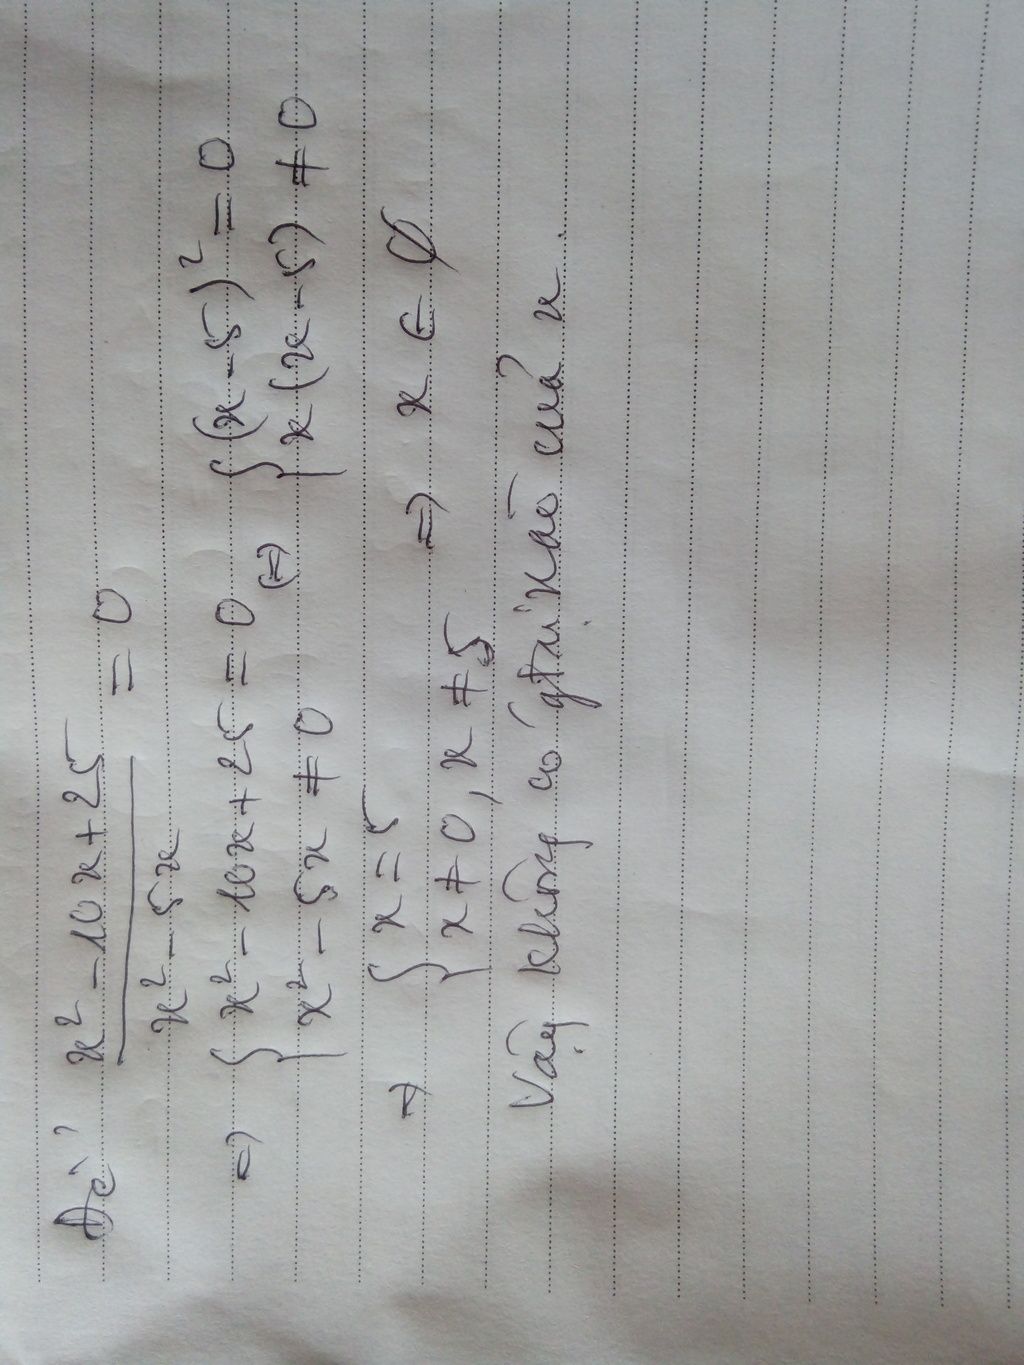 Để x² - 10x + 25 / x² - 5x = 0
=> { x² - 10x + 25 = 0 (=) { (x - 5)² = 0
{ x² - 5x ≠ 0 { x (x - 5) ≠ 0
=> { x = 5 => x ∈ ∅
{ x ≠ 0, x ≠ 5
Vậy không có gtrị nào của x.